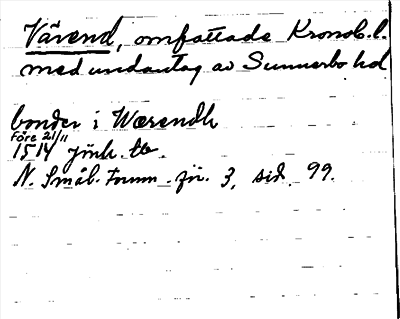 Värend, omfattade Kronob. l.
med undantag av Sunnerbo hd
bonder i Wærendh
före 21/11
1514 Jönk. tb.
N. Smål. Fornm. för. 3, sid. 99.